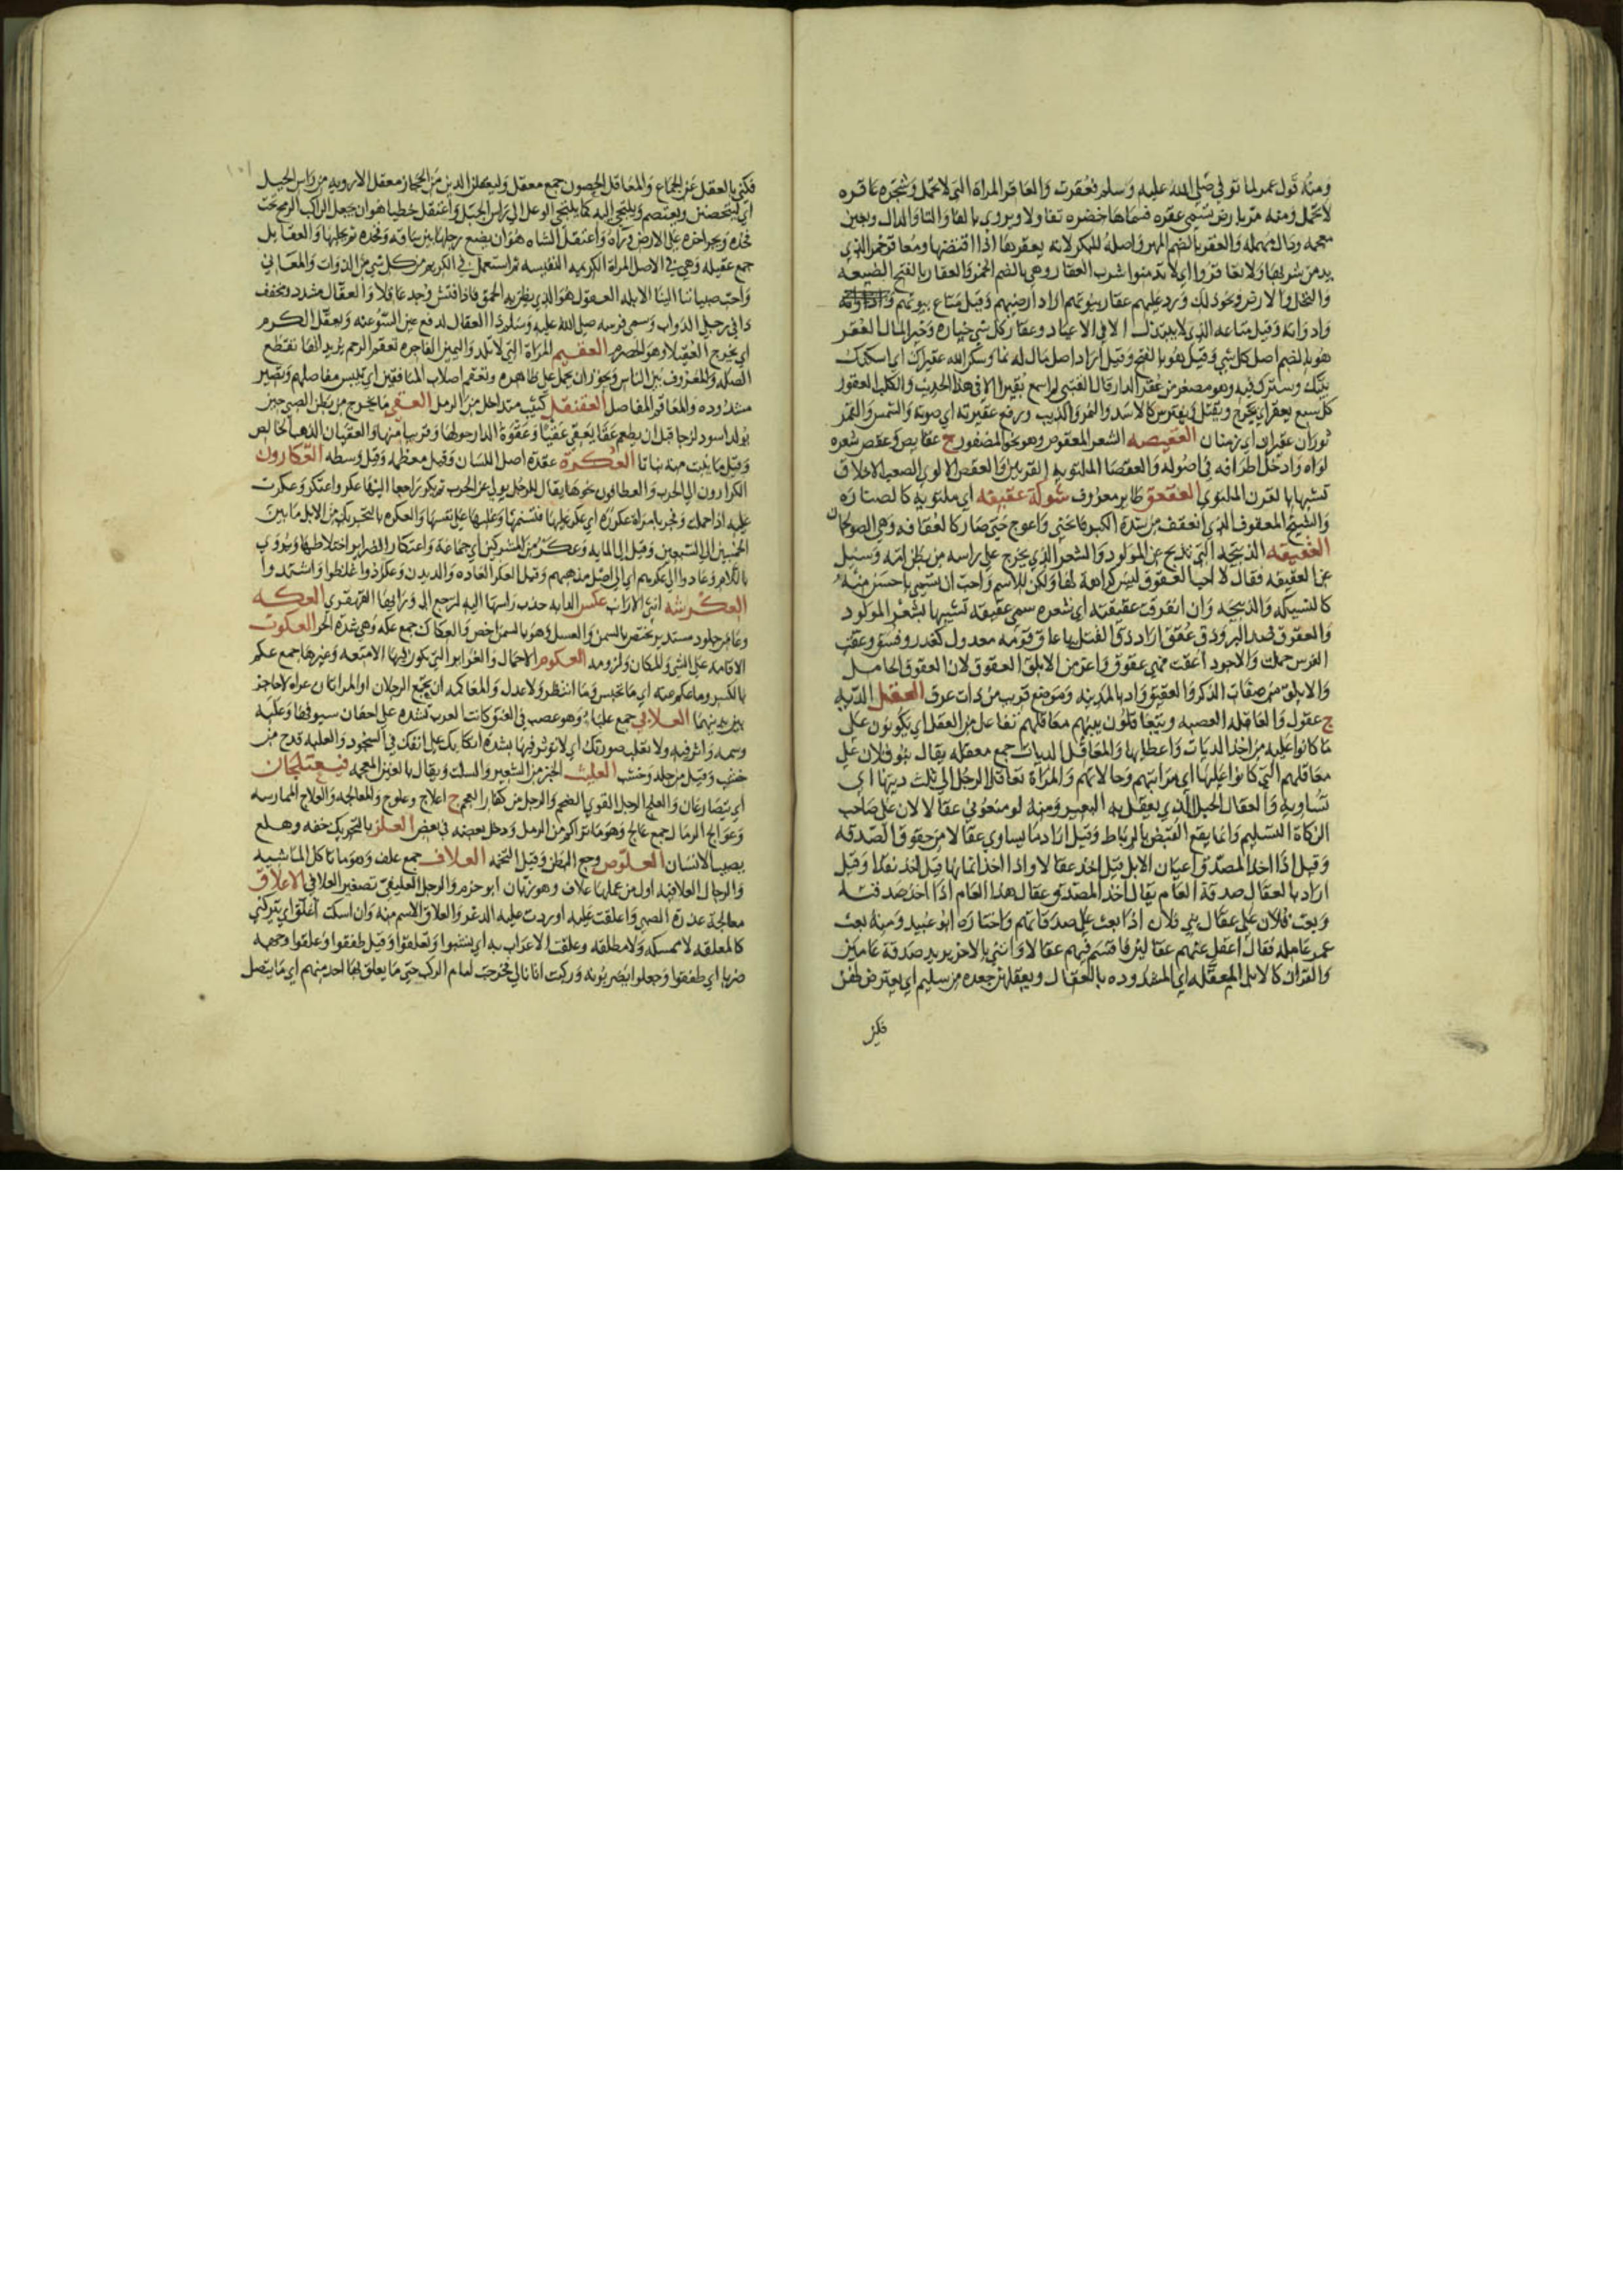 ومنه قول عمر لما توفي صلى الله عليه وسلم فعقرت والعاقر المراة التي لا تحمل وشجره عاقره
لا تحمل ومنه مر بارض تسمى عقره فسماها خضره تفاولا ويروى بالفا والتا والدال وبعين
معجمه ودال مهمله والعقر بالضم المهر واصله للبكر لانه يعقرها اذا اقتضها ومعاقر خمر الذي
يدمن شربها ولا تعاقروا اي لا تدمنوا شرب العقار وهي بالضم الخمر والعقار بالفتح الضيعه
والنخل والارض ونحو ذلك ورد عليهم عقار بيوتهم اراد ارضيهم وقيل متاع بيوتهم
وادواته وقيل متاعه الذي لا يبتذل الا في الاعياد وعقار كل شي خياره وخير المال العقر
هو بالضم اصل كل شي وقيل هو بالفتح وقيل اراد اصل مال له نما وسكن الله عقيراك اي اسكنك
بيتك وسترك فيه وهو مصغر من عقر الدار قال القتبي لم اسمع بعقيرا الا في هذا الحديث والكلب العقور
كل سبع يعقر اي يجرح ويقتل ويفترس كالاسد والنمر والذيب ورفع عقيرته اي صوته والشمس والقمر
ثوران عقيران اي زمنان العقيصه الشعر المعقوص وهو نحو المضفور ج عقايص وعقص شعره
لواه وادخل اطرافه في اصوله والعقصا الملتويه القرنين والعقص الالوي الصعب الاخلاق
تشبيها بالقرن الملتوي العقعق طاير معروف شوكة عقيفه اي ملتويه كالصناره
والشيخ المعقوف الذي انعقف من شدة الكبر فانحنى واعوج حتى صار كالعقافه وهي الصولجان
العقيقه الذبيحه التي تذبح عن المولود والشعر الذي يخرج على راسه من بطن امه وسيل
عن العقيقه فقال لا احب العقوق ليس كراهة لها ولكن للاسم واحب ان تسمى باحسن منه
كالنسيكه والذبيحه وان انفرقت عقيقته اي شعره سمى عقيقه تشبيها بشعر المولود
والعقوق ضد البر وذق عقق اراد ذق القتل يا عاق قومه معدول كغدر وفسق وعقت
الفرس حملت والاجود اعقت فهي عقوق واعز من الابلق العقوق لان العقوق الحامل
والابلق من صفات الذكر والعقيق واد بالمدينه وموضع قريب من ذات عرق العقل الديه
ج عقول والعاقله العصبه ويتعاقلون بينهم معاقلهم تفاعل من العقل اي يكونون على
ما كانوا عليه من اخذ الديات واعطايها والمعاقل الديات جمع معقله يقال بنو فلان على
معاقلهم التي كانوا عليها اي مراتبهم وحالاتهم والمراة تعاقل الرجل الى ثلث ديتها اي
تساويه والعقال الحبل الذي يعقل به البعير ومنه لو منعوني عقالا لان على صاحب
الزكاة التسليم وانما يقع القبض بالرباط وقيل اراد ما يساوي عقالا من حقوق الصدقه
وقيل اذا اخذ المصدق اعيان الابل قيل اخذ عقالا واذا اخذ اثمانها قيل اخذ نقدا وقيل
اراد بالعقال صدقة العام يقال اخذ المصدق عقال هذا العام اذا اخذ صدقته
وبعث فلان على عقال بني فلان اذا بعث على صدقاتهم واختاره ابو عبيد ومنه بعث
عمر عامله فقال اعقل عنهم عقالين فاقسم فيهم عقالا وائتني بالاخر يريد صدقة عامين
والقران كالابل المعقله اي المشدوده بالعقال ويعقلهن جعده من سليم اي يعترض لهن
فكنى
فكنى بالعقل عن الجماع والمعاقل الحصون جمع معقل وليعقلن الدين من الحجاز معقل الارويه من راس الجبل
اي ليتحصنن ويعتصم ويلتجي اليه كما يلتجي الوعل الى راس الجبل واعتقل خطيا هو ان يجعل الراكب الرمح تحت
فخذه ويجر اخره على الارض وراه واعتقل الشاه هو ان يضع رجلها بين ساقه وفخذه ثم يحلبها والعقايل
جمع عقيله وهي في الاصل المراة الكريمه النفيسه ثم استعمل في الكريم من كل شي من الذوات والمعاني
واحب صبياننا الينا الابله العقول هو الذي يظن به الحمق فاذا فتش وجد عاقلا والعقال مشدد ومخفف
دا في رجلي الدواب وسمى فرسه صلى الله عليه وسلم ذا العقال لدفع عين السوء عنه ويعقل الكرم
اي يخرج العقيلا وهو الحصرم العقيم المراة التي لا تلد واليمين الفاجره تعقم الرحم يريد انها تقطع
الصله والمعروف بين الناس ويجوز ان يحمل على ظاهره وتعقم اصلاب المنافقين اي تيبس مفاصلهم وتصير
مشدوده والمعاقم المفاصل العقنقل كثيب متداخل من الرمل العقي ما يخرج من بطن الصبي حين
يولد اسود لزجا قبل ان يطعم عقا يعقي عقيا وعقوة الدار حولها وقريبا منها والعقيان الذهب الخالص
وقيل ما ينبت منه نباتا العكرة عقدة اصل اللسان وقيل معظمه وقيل وسطه العكارون
الكرارون الى الحرب والعطافون نحوها يقال للرجل يولي عن الحرب ثم يكر راجعا اليها عكر واعتكر وعكرت
عليه اذا حملت وفجر بامراة عكوره اي عكر عليها فتسنمها وغلبها على نفسها والعكره بالتحريك من الابل ما بين
الخمسين الى السبعين وقيل الى المايه وعكر من المشركين اي جماعة واعتكار الضراير اختلاطها ويروى
باللام وعادوا الى عكرهم اي الى اصل مذهبهم وقيل العكر العاده والديدن وعكرذوا غلظوا واشتدوا
العكرشه انثى الارانب عكس الدابه جذب راسها اليه لترجع الى ورايها القهقرى العكه
وعا من جلود مستدير يختص بالسمن والعسل وهو بالسمن اخص والعكاك جمع عكه وهي شدة الحر العكوف
الاقامه على الشي والمكان ولزومه العكوم الاحمال والغراير التي يكون فيها الامتعه وغيرها جمع عكم
بالكسر وما عكم عنه اي ما تحبس وما انتظر ولا عدل والمعاكمه ان يجتمع الرجلان او المراتان عراة لا حاجز
بين بدنيهما العلابي جمع علباء وهو عصب في العنق كانت العرب تشده على اجفان سيوفها وعلبه
وسمه واثر فيه ولا تعلب صورتك اي لا توثر فيها بشدة اتكايك على انفك في السجود والعلبه قدح من
خشب وقيل من جلد وخشب العليث الخبز من الشعير والسلت ويقال بالغين المعجمه فيعتلجان
اي يتصارعان والعلج الرجل القوي الضخم والرجل من كفار العجم ج اعلاج وعلوج والمعالجه والعلاج الممارسه
وعوالج الرمال جمع عالج وهو ما تراكم من الرمل ودخل بعضه في بعض العلز بالتحريك خفه وهلع
يصيب الانسان العلوص وجع البطن وقيل التخمه العلاف جمع علف وهو ما تاكل الماشيه
والرحال العلافيه اول من عملها علاف وهو زبان ابو جرم والرحل العليفي تصغير العلافي الاعلاق
معالجة عذرة الصبي واعلقت عليه اوردت عليه الدغر والعلاق الاسم منه وان اسكت اعلق اي يتركني
كالمعلقه لا ممسكه ولا مطلقه وعلقت الاعراب به اي نشبوا وتعلقوا وقيل طفقوا وعلقوا وجهه
ضربا اي طفقوا وجعلوا يضربونه وركبت اتانا لي فخرجت امام الركب حتى ما يعلق بها احد منهم اي ما يتصل